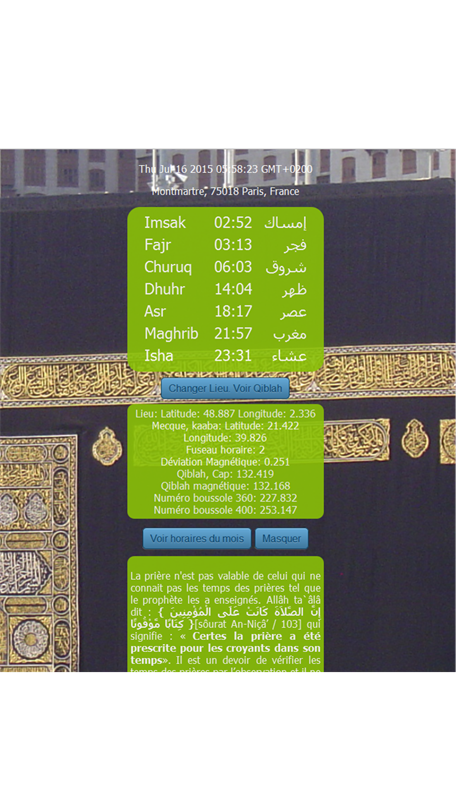 Thu Jul 16 2015 05:58:23 GMT+0200
Montmartre, 75018 Paris, France
Imsak 02:52 إمساك
Fajr 03:13 فجر
Churuq 06:03 شروق
Dhuhr 14:04 ظهر
Asr 18:17 عصر
Maghrib 21:57 مغرب
Isha 23:31 عشاء
Changer Lieu. Voir Qiblah
Lieu: Latitude: 48.887 Longitude: 2.336
Mecque, kaaba: Latitude: 21.422
Longitude: 39.826
Fuseau horaire: 2
Déviation Magnétique: 0.251
Qiblah, Cap: 132.419
Qiblah magnétique: 132.168
Numéro boussole 360: 227.832
Numéro boussole 400: 253.147
Voir horaires du mois Masquer
La prière n'est pas valable de celui qui ne
connait pas les temps des prières tel que
le prophète les a enseignés. Allâh ta`âlâ
dit : { إِنَّ الصَّلاَةَ كَانَتْ عَلَى الْمُؤْمِنِينَ
كِتَابًا مَّوْقُوتًا }[sôurat An-Niçâ’ / 103] qui
signifie : « Certes la prière a été
prescrite pour les croyants dans son
temps». Il est un devoir de vérifier les
temps des prières par l'observation et il ne